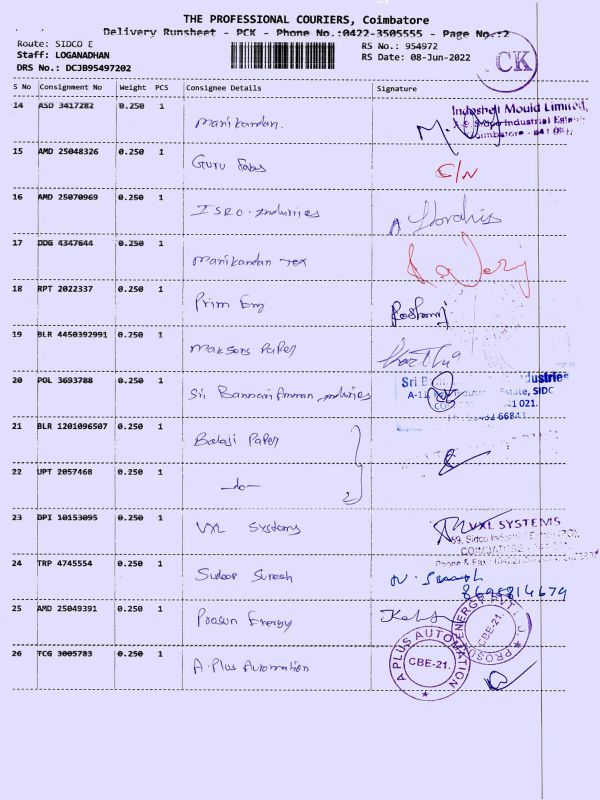 THE PROFESSIONAL COURIERS, Coimbatore
Delivery Runsheet - PCK - Phone No.:0422-3505555 - Page No.:2
Route: SIDCO E
Staff: LOGANADHAN
DRS No.: DCJB95497202
RS No.: 954972
RS Date: 08-Jun-2022
CK
S No Consignment No Weight PCS Consignee Details Signature
14 ASD 3417282 0.250 1 Manikandan.
Indoshell Mould Limited,
Industrial Estate
Coimbatore - 641
15 AMD 25048326 0.250 1 Guru Fabs C/N
16 AMD 25070969 0.250 1 ISRO. Industries
17 DDG 4347644 0.250 1 Manikandan Tex
18 RPT 2022337 0.250 1 Prim Eng
19 BLR 4450392991 0.250 1 Maksons Paper
20 POL 3693788 0.250 1 Sri Bannari Amman Industries
Sri B Industries
Estate, SIDC
41 021.
66843
21 BLR 1201096507 0.250 1 Balaji Paper
22 UPT 2057468 0.250 1 -do-
23 DPI 10153095 0.250 1 VXL Systems
VXL SYSTEMS
24 TRP 4745554 0.250 1 Suresh
25 AMD 25049391 0.250 1 Prosun Energy
ENERGY PVT
CBE-21.
26 TCG 3005783 0.250 1 A. Plus Automation
A PLUS AUTOMATION
CBE-21.